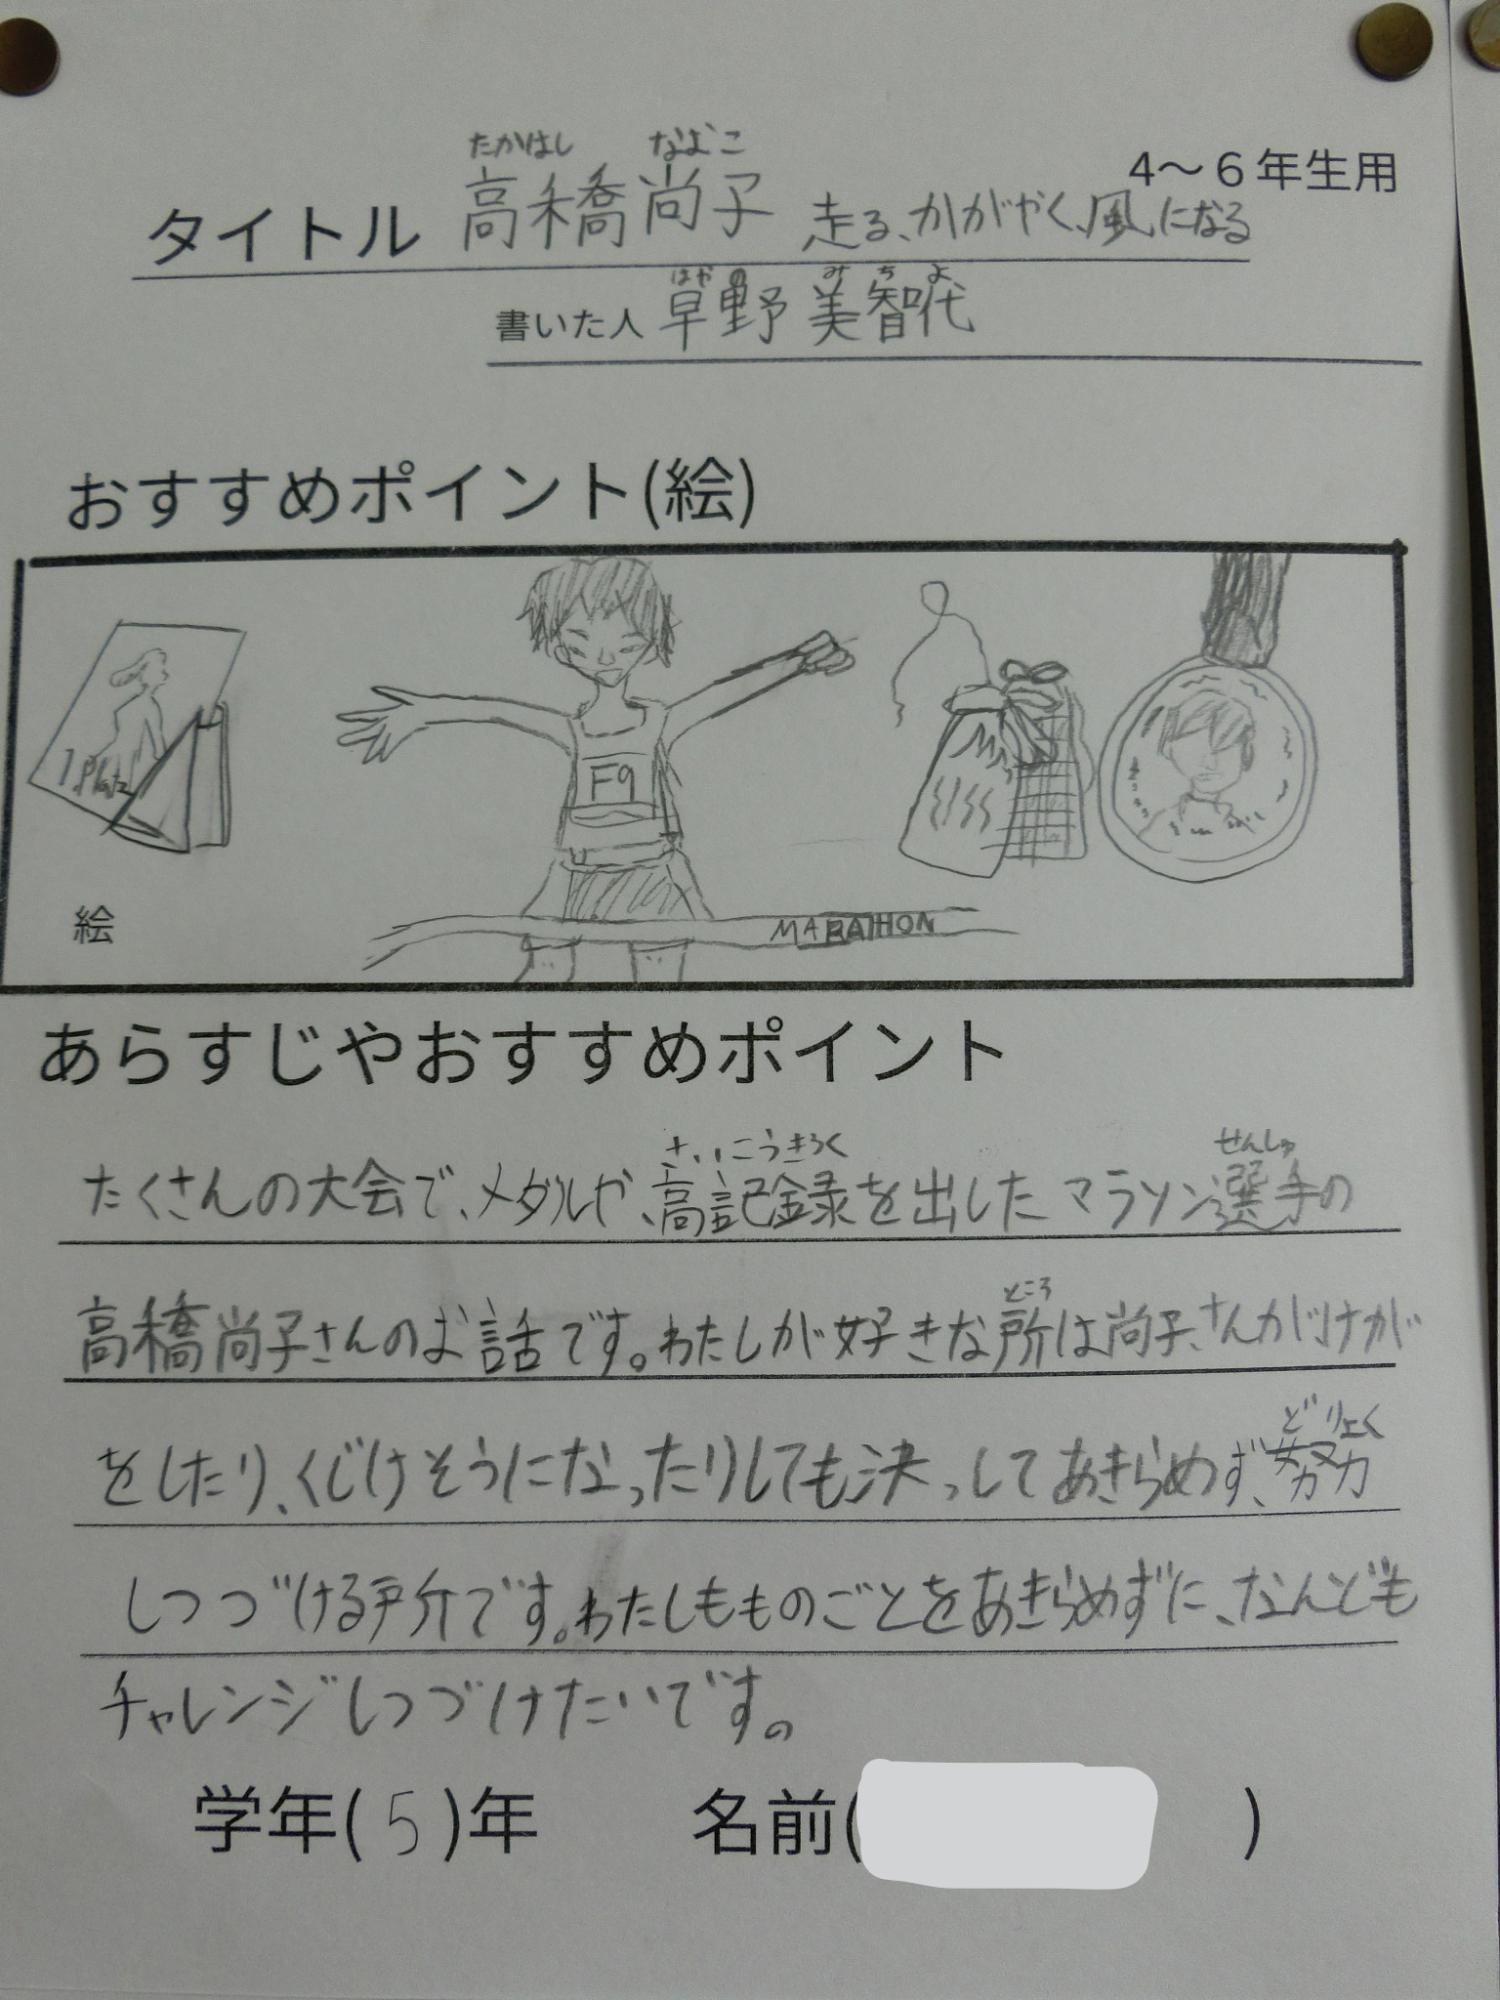 たかはし なおこ
4〜6年生用
タイトル 高橋尚子 走る、かがやく、風になる
はやの みちよ
書いた人 早野 美智代
おすすめポイント(絵)
F9
MARATHON
絵
あらすじやおすすめポイント
さいこうきろく せんしゅ
たくさんの大会で、メダルや、高記録を出したマラソン選手の
ところ
高橋尚子さんのお話です。わたしが好きな所は尚子さんがけが
どりょく
をしたり、くじけそうになったりしても決っしてあきらめず、努力
しつづける所です。わたしもものごとをあきらめずに、なんども
チャレンジしつづけたいです。
学年(5)年 名前( )